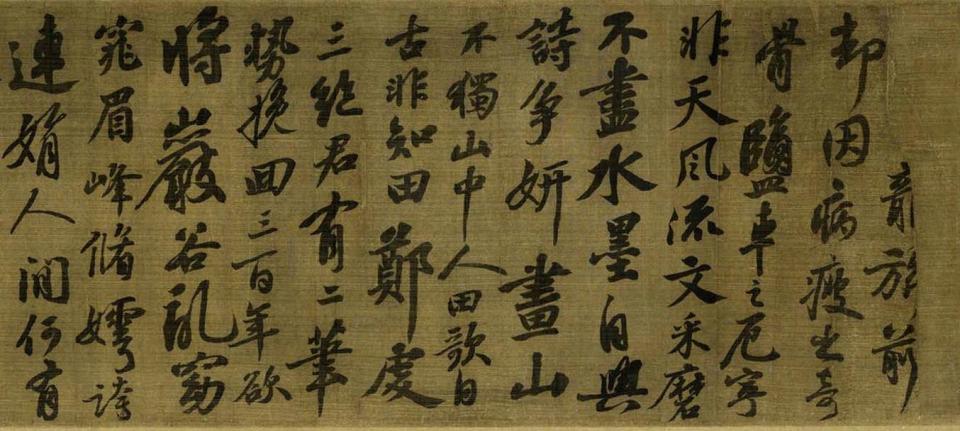 龍旂前
却因病瘦出奇
骨鹽車之厄寧
非天風流文采磨
不盡水墨自與
詩争妍畫山
不獨山中人田歌自
古非知田鄭虔
三絕君有二筆
勢挽回三百年欲
將巖谷亂窈
窕眉峰脩嫮誇
連娟人間何有